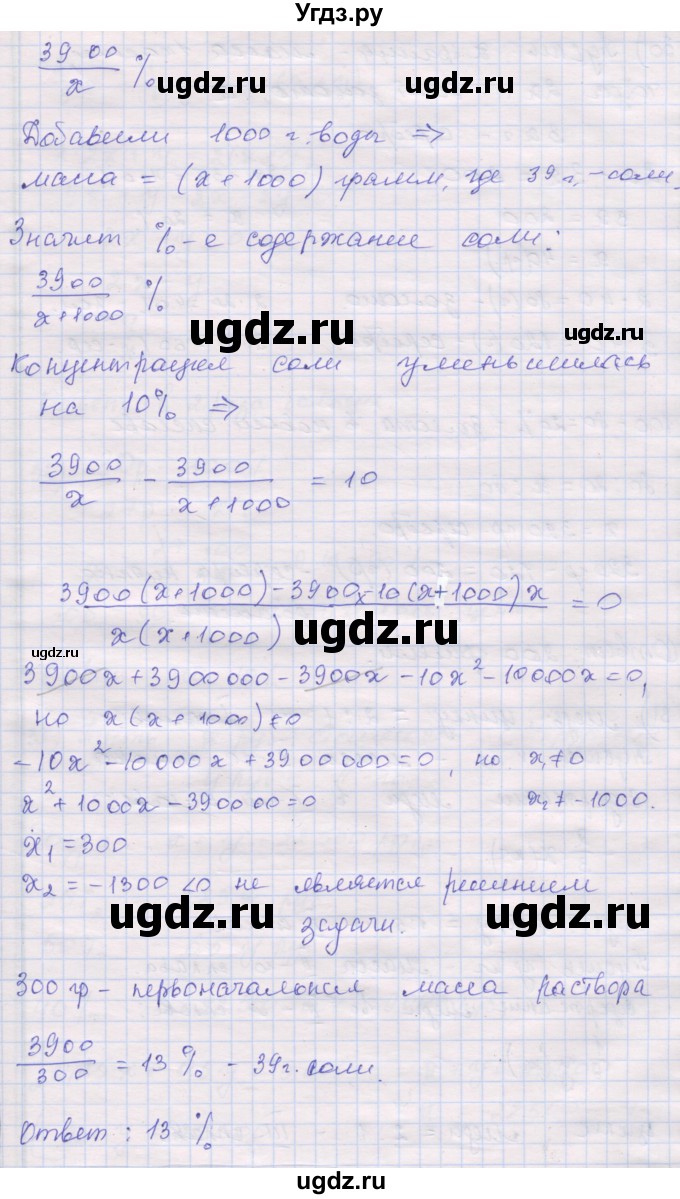 Угдз.ру
3900/x %
Добавили 1000 г. воды ⇒
масса = (x+1000) грамм, где 39 г, - соли.
Значит %-е содержание соли:
3900/(x+1000) %
Концентрация соли уменьшилась
на 10% ⇒
3900/x - 3900/(x+1000) = 10
(3900(x+1000)-3900x-10(x+1000)x)/(x(x+1000)) = 0
3900x+3900000-3900x-10x²-10000x=0,
но x(x+1000)≠0
-10x²-10000x+3900000=0, но x₁≠0
x²+1000x-390000=0 x₂≠-1000.
x₁=300
x₂=-1300<0 не является решением
задачи.
300 гр - первоначальная масса раствора
3900/300 = 13% - 39 г. соли.
Ответ: 13 %
ugdz.ru
ugdz.ru
ugdz.ru
ugdz.ru
ugdz.ru
ugdz.ru
ugdz.ru
ugdz.ru
ugdz.ru
ugdz.ru